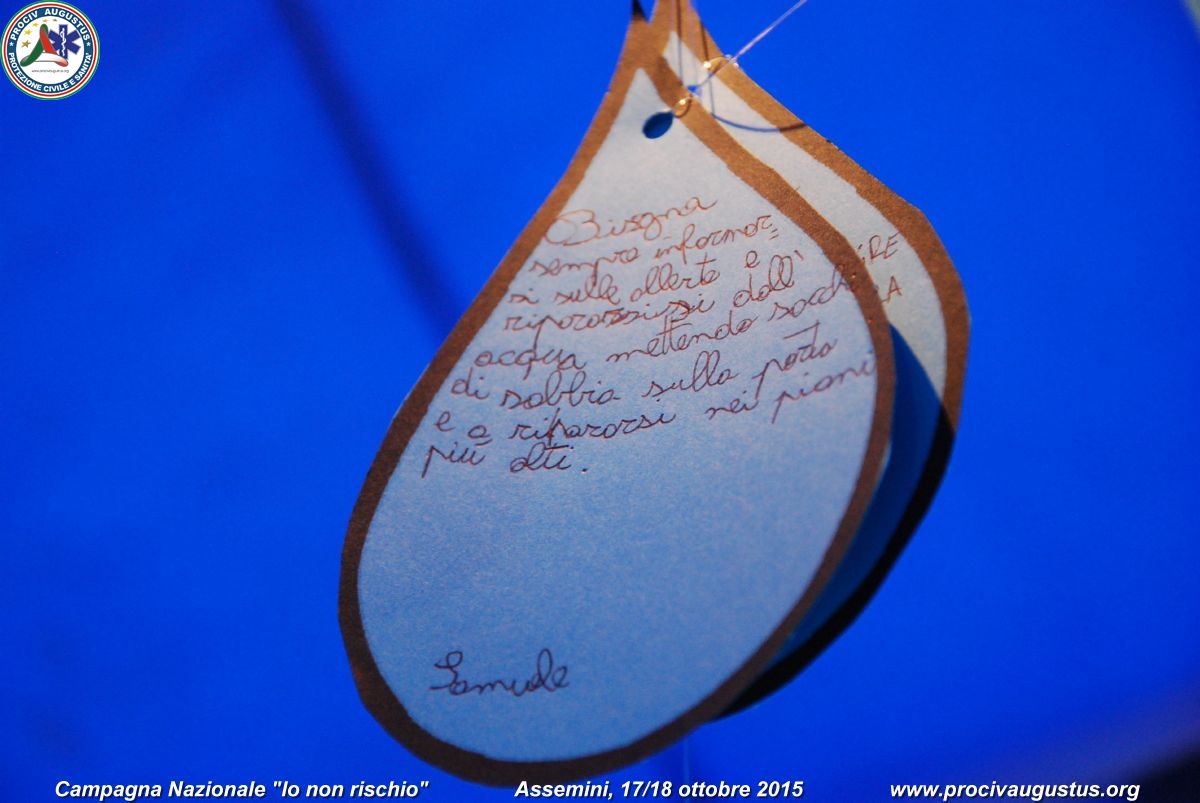 PROCIV AUGUSTUS
www.procivaugustus.org
PROTEZIONE CIVILE E SANITA'
Bisogna
sempre informar=
si sulle allerte e
ripararsi dall'
acqua mettendo sacchi
di sabbia sulla porta
e a ripararsi nei piani
più alti.
Samuele
Campagna Nazionale "Io non rischio"
Assemini, 17/18 ottobre 2015
www.procivaugustus.org